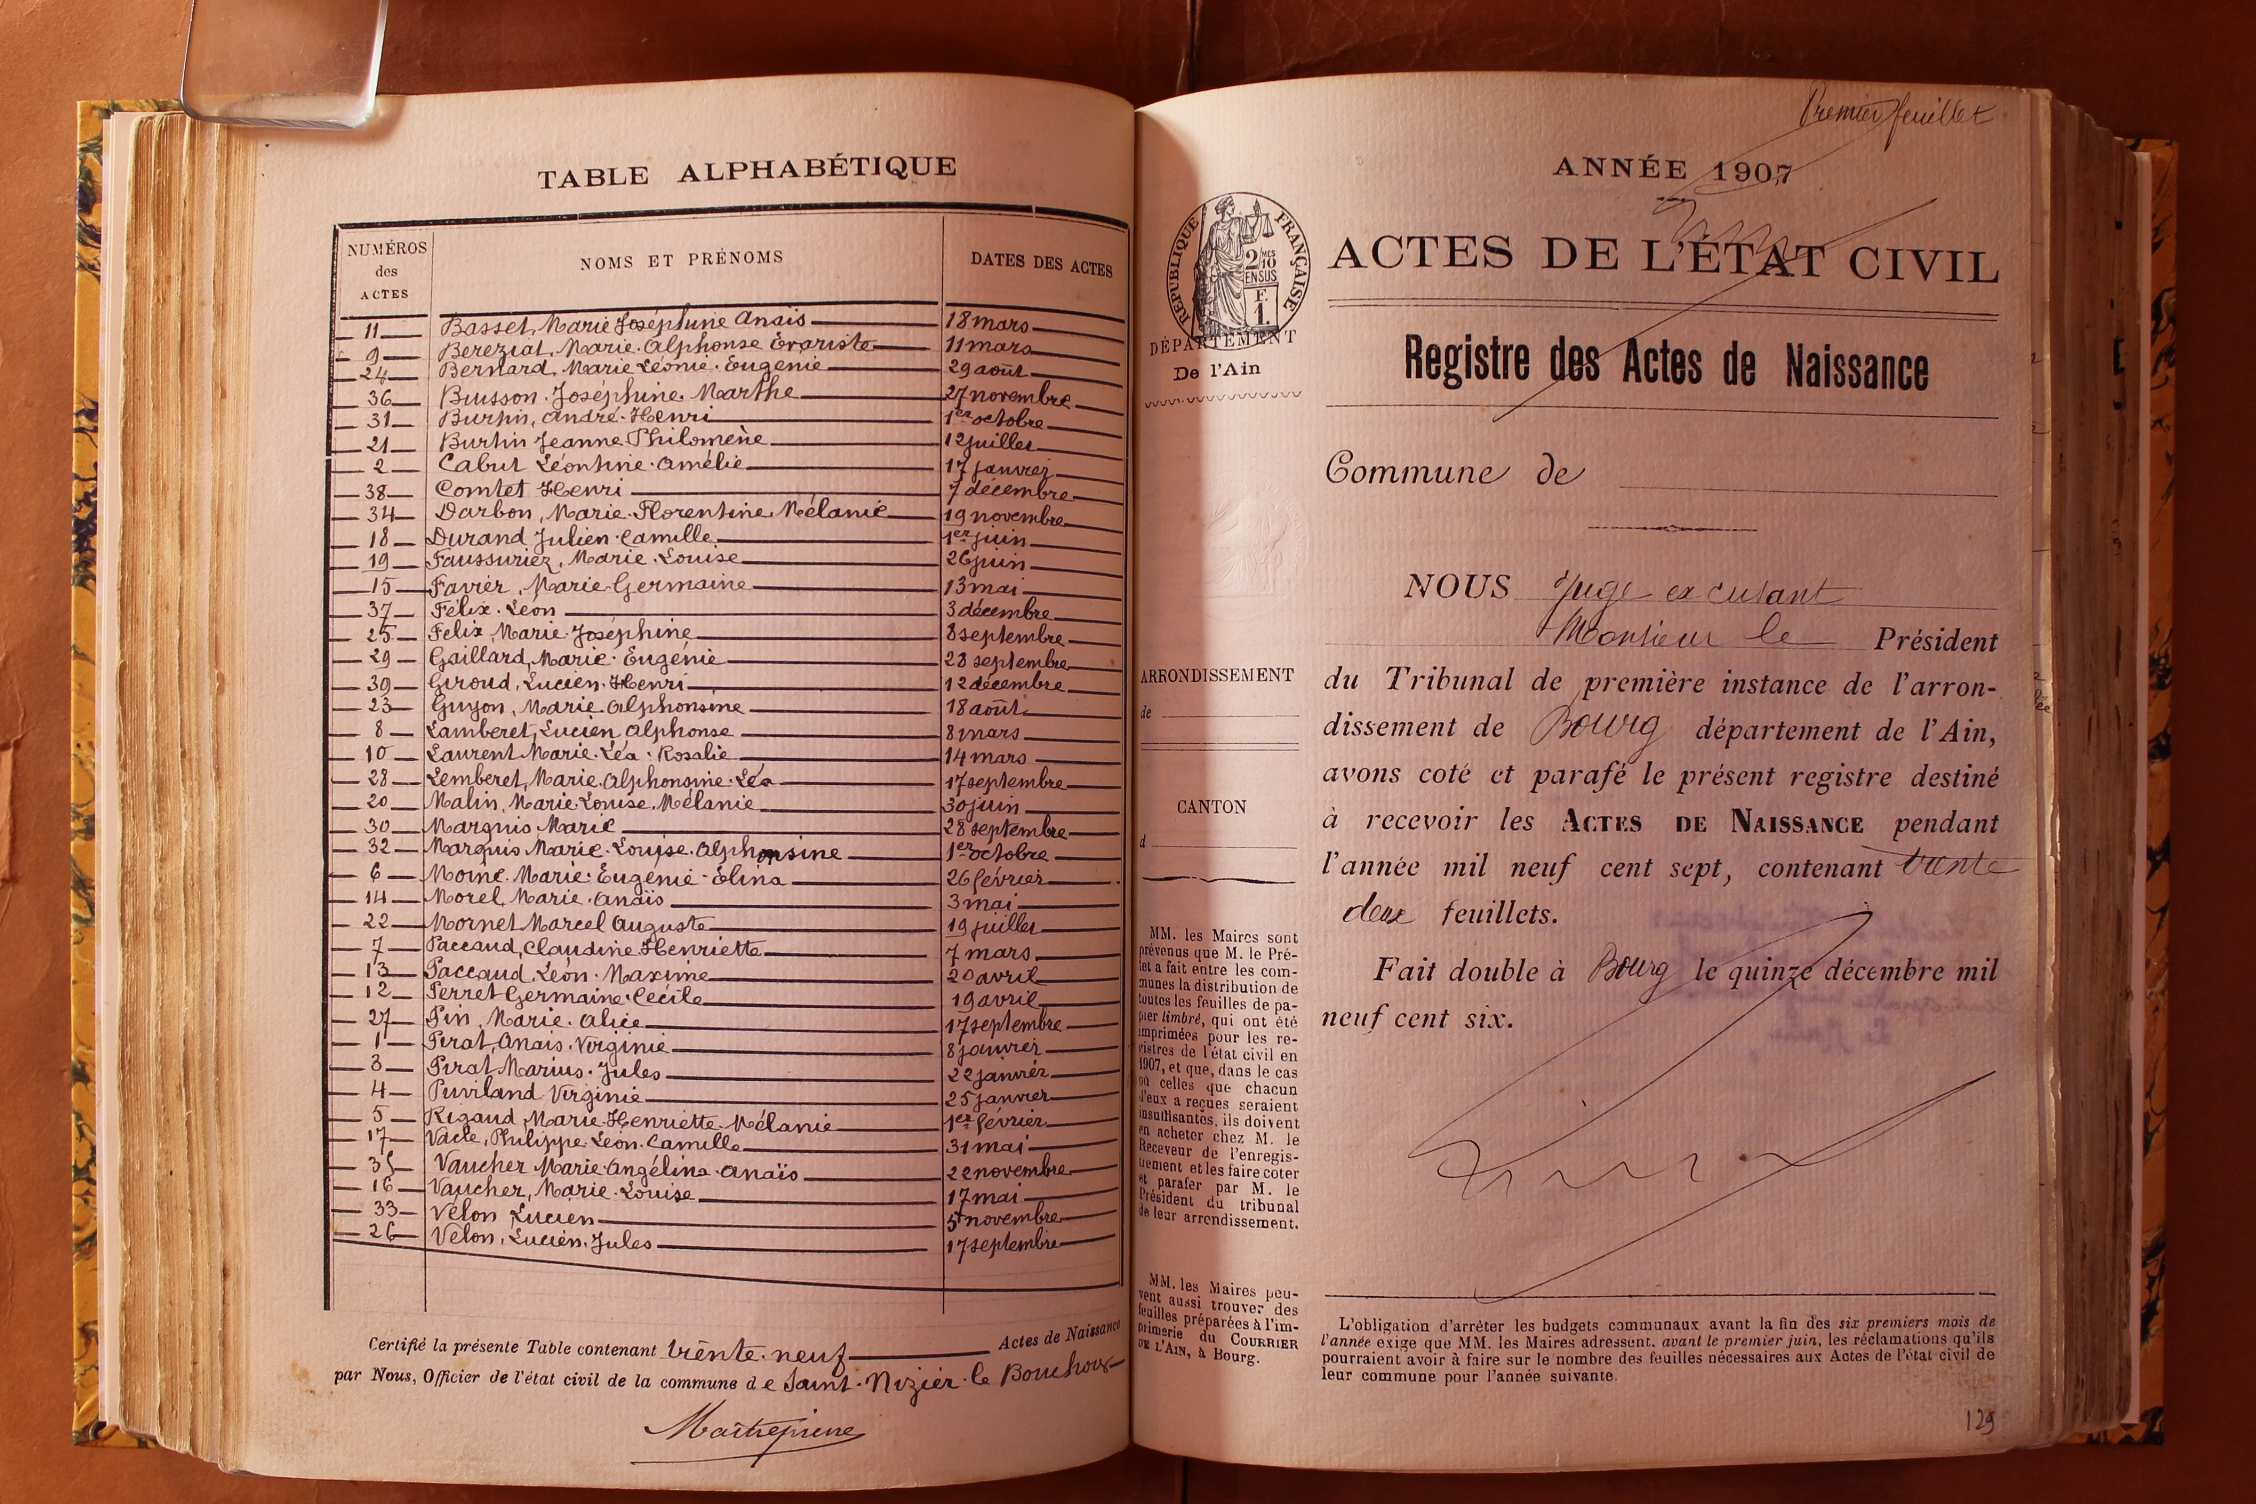 TABLE ALPHABÉTIQUE
NUMÉROS des ACTES NOMS ET PRÉNOMS DATES DES ACTES
11 Basset, Marie Joséphine Anaïs 18 mars
9 Bereziat, Marie Alphonse Évariste 11 mars
24 Bernard, Marie Léonie Eugénie 29 août
36 Buisson Joséphine Marthe 27 novembre
31 Burtin, André Henri 1er octobre
21 Burtin Jeanne Philomène 12 juillet
2 Cabut Léontine Amélie 17 janvier
38 Comtet Henri 7 décembre
34 Darbon, Marie Florentine Mélanie 19 novembre
18 Durand Julien Camille 1er juin
19 Faussuriez, Marie Louise 26 juin
15 Favier, Marie Germaine 13 mai
37 Félix Léon 3 décembre
25 Felix, Marie Joséphine 8 septembre
29 Gaillard, Marie Eugénie 28 septembre
39 Giroud, Lucien Henri 12 décembre
23 Guyon, Marie Alphonsine 18 août
8 Lamberet, Lucien Alphonse 8 mars
10 Laurent Marie Léa Rosalie 14 mars
28 Lemberet, Marie Alphonsine Léa 17 septembre
20 Malin, Marie Louise Mélanie 30 juin
30 Marquis Marie 28 septembre
32 Marquis Marie Louise Alphonsine 1er octobre
6 Moine Marie Eugénie Élina 26 février
14 Morel, Marie Anaïs 3 mai
22 Mornet Marcel Auguste 19 juillet
7 Paccaud, Claudine Henriette 7 mars
13 Paccaud Léon Maxime 20 avril
12 Perret Germaine Cécile 19 avril
27 Pin, Marie Alice 17 septembre
1 Pirat, Anaïs Virginie 8 janvier
3 Pirat Marius Jules 22 janvier
4 Puvilland Virginie 25 janvier
5 Rigaud, Marie Henriette Mélanie 1er février
17 Vacle, Philippe Léon Camille 31 mai
35 Vaucher Marie Angélina Anaïs 22 novembre
16 Vaucher, Marie Louise 17 mai
33 Velon Lucien 5 novembre
26 Velon, Lucien Jules 17 septembre
Certifié la présente Table contenant trente-neuf Actes de Naissance
par Nous, Officier de l'état civil de la commune de Saint-Nizier-le Bouchoux
Premier feuillet
ANNÉE 1907
ACTES DE L'ÉTAT CIVIL
RÉPUBLIQUE FRANÇAISE
2/10
MES
EN SUS
F.
1.
DÉPARTEMENT
De l'Ain
Registre des Actes de Naissance
Commune de
NOUS Juge excusant
Monsieur le Président
du Tribunal de première instance de l'arron-
dissement de Bourg département de l'Ain,
avons coté et parafé le présent registre destiné
à recevoir les ACTES DE NAISSANCE pendant
l'année mil neuf cent sept, contenant trente
deux feuillets.
Fait double à Bourg le quinze décembre mil
neuf cent six.
ARRONDISSEMENT
de
CANTON
d
MM. les Maires sont
prévenus que M. le Pré-
fet a fait entre les com-
munes la distribution de
toutes les feuilles de pa-
pier timbré, qui ont été
imprimées pour les re-
gistres de l'état civil en
1907, et que, dans le cas
où celles que chacun
d'eux a reçues seraient
insuffisantes, ils doivent
en acheter chez M. le
Receveur de l'enregis-
trement et les faire coter
et parafer par M. le
Président du tribunal
de leur arrondissement.
MM. les Maires peu-
vent aussi trouver des
feuilles préparées à l'im-
primerie du COURRIER
DE L'AIN, à Bourg.
L'obligation d'arrêter les budgets communaux avant la fin des six premiers mois de
l'année exige que MM. les Maires adressent, avant le premier juin, les réclamations qu'ils
pourraient avoir à faire sur le nombre des feuilles nécessaires aux Actes de l'état civil de
leur commune pour l'année suivante.
129